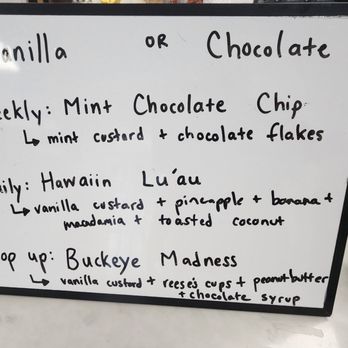 anilla OR Chocolate
ekly: Mint Chocolate Chip
↳ mint custard + chocolate flakes
ily: Hawaiin Lu'au
↳ vanilla custard + pineapple + banana +
macadamia + toasted coconut
op up: Buckeye Madness
↳ vanilla custard + reese's cups + peanutbutter
+ chocolate syrup